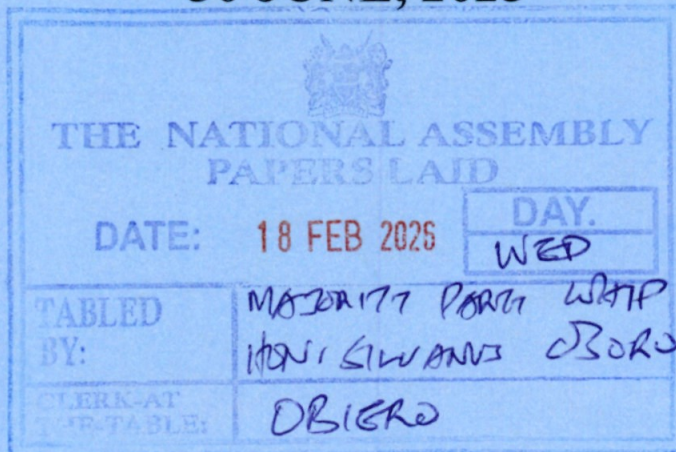 THE NATIONAL ASSEMBLY
PAPERS LAID
DATE: 18 FEB 2026
DAY.
WED
TABLED BY:
MAJORITY PARTY WHIP
HON. SILVANUS OSORO
CLERK-AT THE-TABLE:
OBIERO